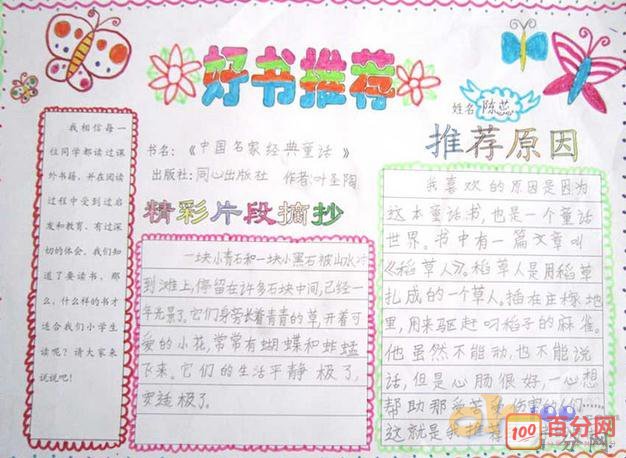 好书推荐
姓名 陈蕊
我相信每一
位同学都读过课
外书籍，并在阅读
过程中受到过启
发和教育，有过深
切的体会。我们知
道了要读书，那
么，什么样的书才
适合我们小学生
读呢？请大家来
说说吧！
书名：《中国名家经典童话》
出版社：同心出版社 作者：叶圣陶
精彩片段摘抄
一块小青石和一块小黑石被山水冲
到滩上，停留在许多石块中间，已经一
年光景了。它们身旁长着青青的草，开着可
爱的小花，常常有蝴蝶和蚱蜢
飞来。它们的生活平静极了，
安适极了。
推荐原因
我喜欢的原因是因为
这本童话书，也是一个童话
世界。书中有一篇文章叫
《稻草人》。稻草人是用稻草
扎成的一个草人。插在庄稼地
里，用来驱赶叼稻子的麻雀。
他虽然不能动，也不能说
话，但是心肠很好，一心想
帮助那受苦受伤害的人们……
这就是我推荐
100 百分网